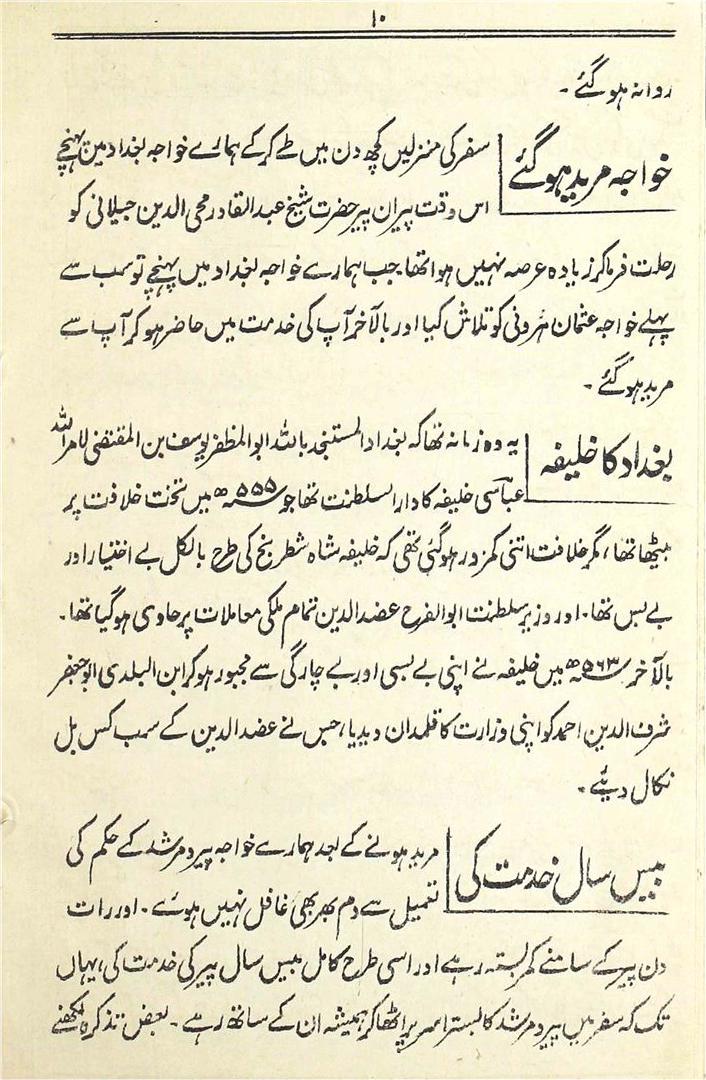 ۱۰
روانہ ہو گئے ۔
خواجہ مرید ہو گئے
سفر کی منزلیں کچھ دن میں طے کر کے ہمارے خواجہ بغداد میں پہنچے
اس وقت پیران پیر حضرت شیخ عبدالقادر محی الدین جیلانی کو
رحلت فرما کر زیادہ عرصہ نہیں ہوا تھا جب ہمارے خواجہ بغداد میں پہنچے تو سب سے
پہلے خواجہ عثمان ہرونی کو تلاش کیا اور بالآخر آپ کی خدمت میں حاضر ہو کر آپ سے
مرید ہو گئے ۔
بغداد کا خلیفہ
یہ وہ زمانہ تھا کہ بغداد المستنجد باللہ ابوالمظفر یوسف بن المقتضی لامر اللہ
عباسی خلیفہ کا دارالسلطنت تھا جو ۵۵۵ھ میں تخت خلافت پر
بیٹھا تھا ، مگر خلافت اتنی کمزور ہو گئی تھی کہ خلیفہ شاہ شطرنج کی طرح بالکل بے اختیار اور
بے بس تھا ۔ اور وزیر سلطنت ابو الفرح عضد الدین تمام ملکی معاملات پر حاوی ہو گیا تھا ۔
بالآخر ۵۶۳ھ میں خلیفہ نے اپنی بے بسی اور بے چارگی سے مجبور ہو کر ابن البلدی ابو جعفر
شرف الدین احمد کو اپنی وزارت کا قلمدان دیدیا ، جس نے عضد الدین کے سب کس بل
نکال دیئے ۔
بیس سال خدمت کی
مرید ہونے کے بعد ہمارے خواجہ پیر و مرشد کے حکم کی
تعمیل سے دم بھر بھی غافل نہیں ہوئے ۔ اور رات
دن پیر کے سامنے کمر بستہ رہے اور اسی طرح کامل بیس سال پیر کی خدمت کی ، یہاں
تک کہ سفر میں پیر و مرشد کا بستر سر پر اٹھا کر ہمیشہ ان کے ساتھ رہے ۔ بعض تذکرہ لکھنے